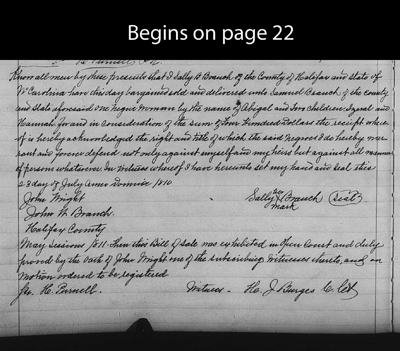 Begins on page 22
H. Purnell,
Know all men by these presents that I Sally A Branch of the County of Halifax and State of
N Carolina have this day bargained sold and delivered unto Samuel Branch of the county
and State aforesaid one negro woman by the name of Abigal and two children Isreal and
Hannah for and in consideration of the sum of four Hundred Dollars the receipt where
of is hereby acknowledged the right and title of which the said Negroes I do hereby war
rant and forever defend not only against myself and my heirs but against all manner
of persons whatsoever In witness whereof I have hereunto set my hand and seal this
23 day of July Anno Domini 1810
John Wright Sally her X mark Branch (seal)
John W. Branch.
Halifax County
May Sessions 1811. Then this Bill of sale was exhibited in Open Court and duly
proved by the oath of John Wright one of the subscribing witnesses thereto, and on
motion ordered to be registered
Jno. H. Purnell. Witness - H. J Burges C. Ct